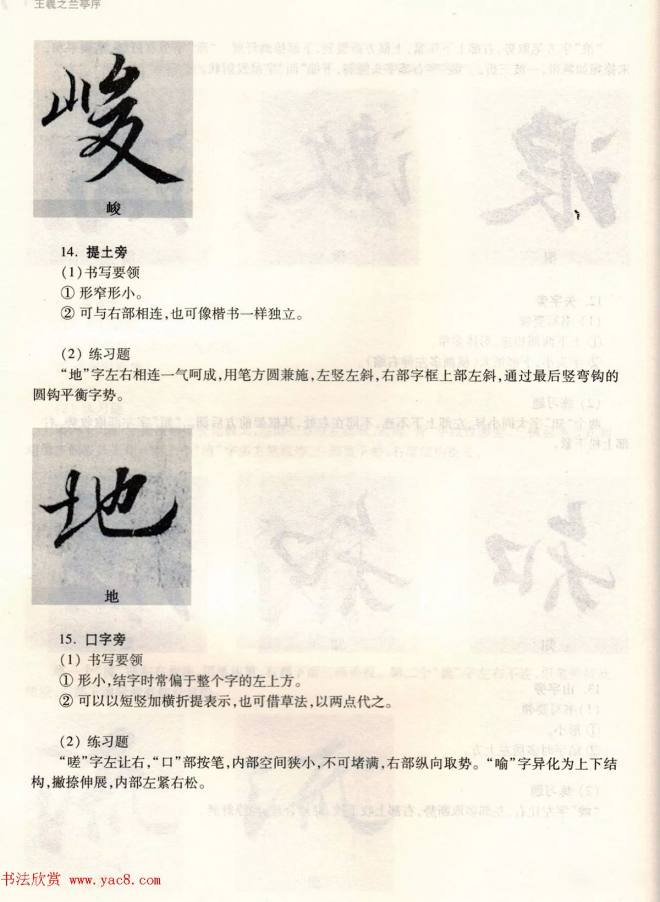 王羲之兰亭序
峻
峻
14. 提土旁
(1)书写要领
① 形窄形小。
② 可与右部相连,也可像楷书一样独立。
(2) 练习题
“地”字左右相连一气呵成,用笔方圆兼施,左竖左斜,右部字框上部左斜,通过最后竖弯钩的
圆钩平衡字势。
地
地
15. 口字旁
(1) 书写要领
① 形小,结字时常偏于整个字的左上方。
② 可以以短竖加横折提表示,也可借草法,以两点代之。
(2) 练习题
“嗟”字左让右,“口”部按笔,内部空间狭小,不可堵满,右部纵向取势。“喻”字异化为上下结
构,撇捺伸展,内部左紧右松。
书法欣赏 www.yac8.com